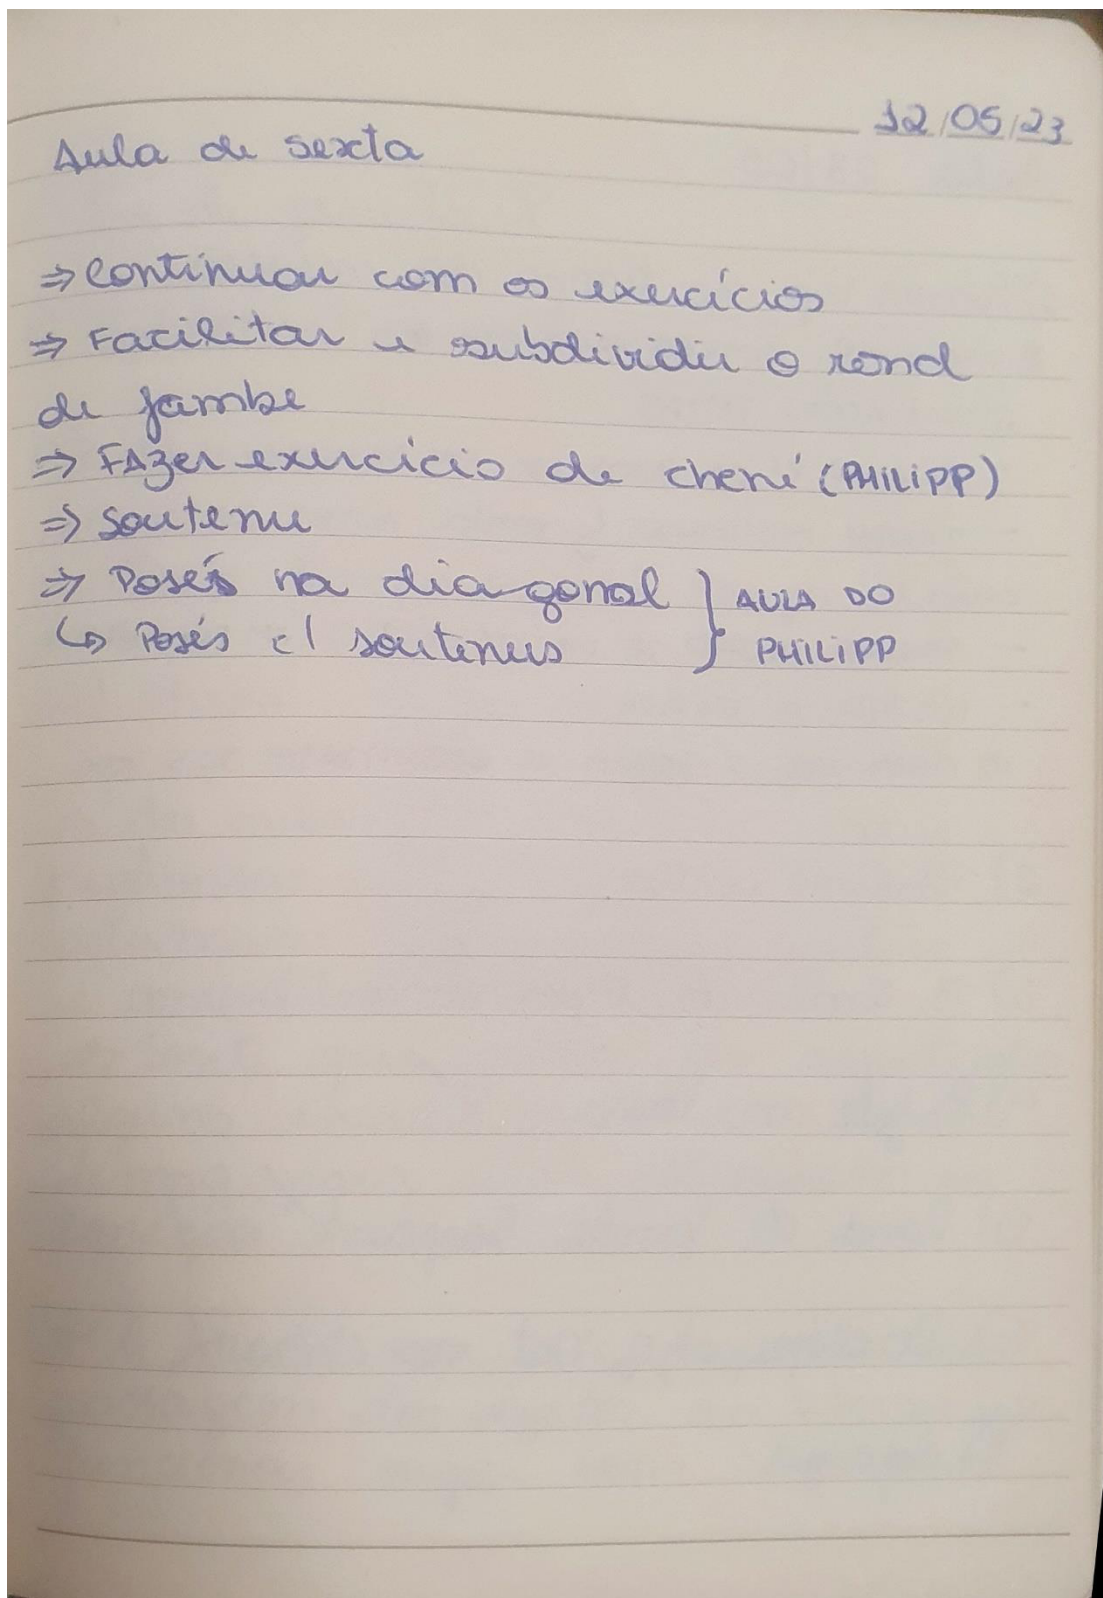 12/05/23
Aula de sexta
⇒ Continuar com os exercícios
⇒ Facilitar e subdividir o rond
de jambe
⇒ FAzer exercício de chené (PHILIPP)
⇒ Soutenu
⇒ Posés na diagonal } AULA DO
↳ Posés c/ soutenus } PHILIPP